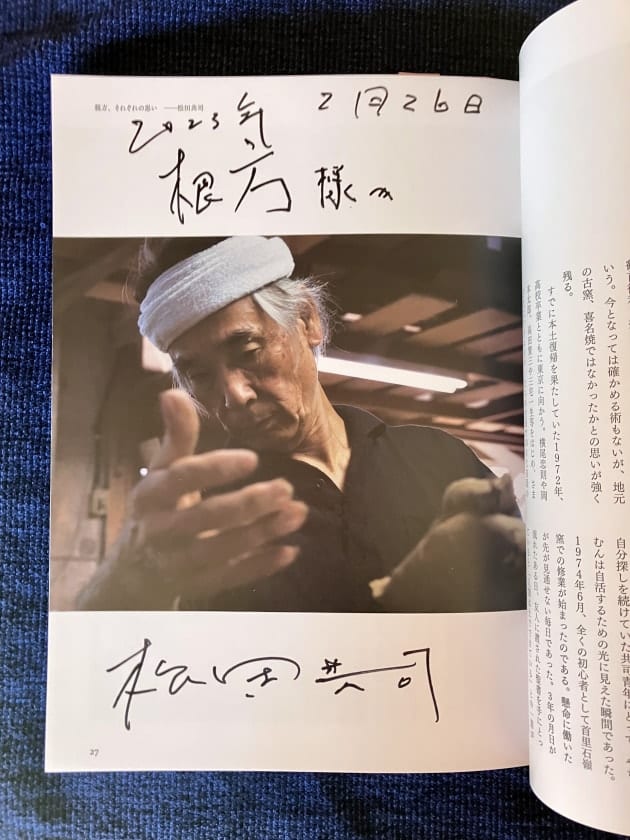 親方、それぞれの思い ――松田共司
2023年 2月26日
根方 様へ
松田共司
27
いう。今となっては確かめる術もないが、地元
の古窯、喜名焼ではなかったかとの思いが強く
残る。
すでに本土復帰を果たしていた1972年、
高校卒業とともに東京に向かう。横尾忠則や岡
本太郎、高田賢三や三宅一生等をはじめ、さま
自分探しを続けていた共司青年にとって、
むんは自活するための光に見えた瞬間であった。
1974年6月、全くの初心者として首里石嶺
窯での修業が始まったのである。懸命に働いた
が先が見通せない毎日であった。3年の月日が
流れたある日、友人に渡された聖書を手にとっ